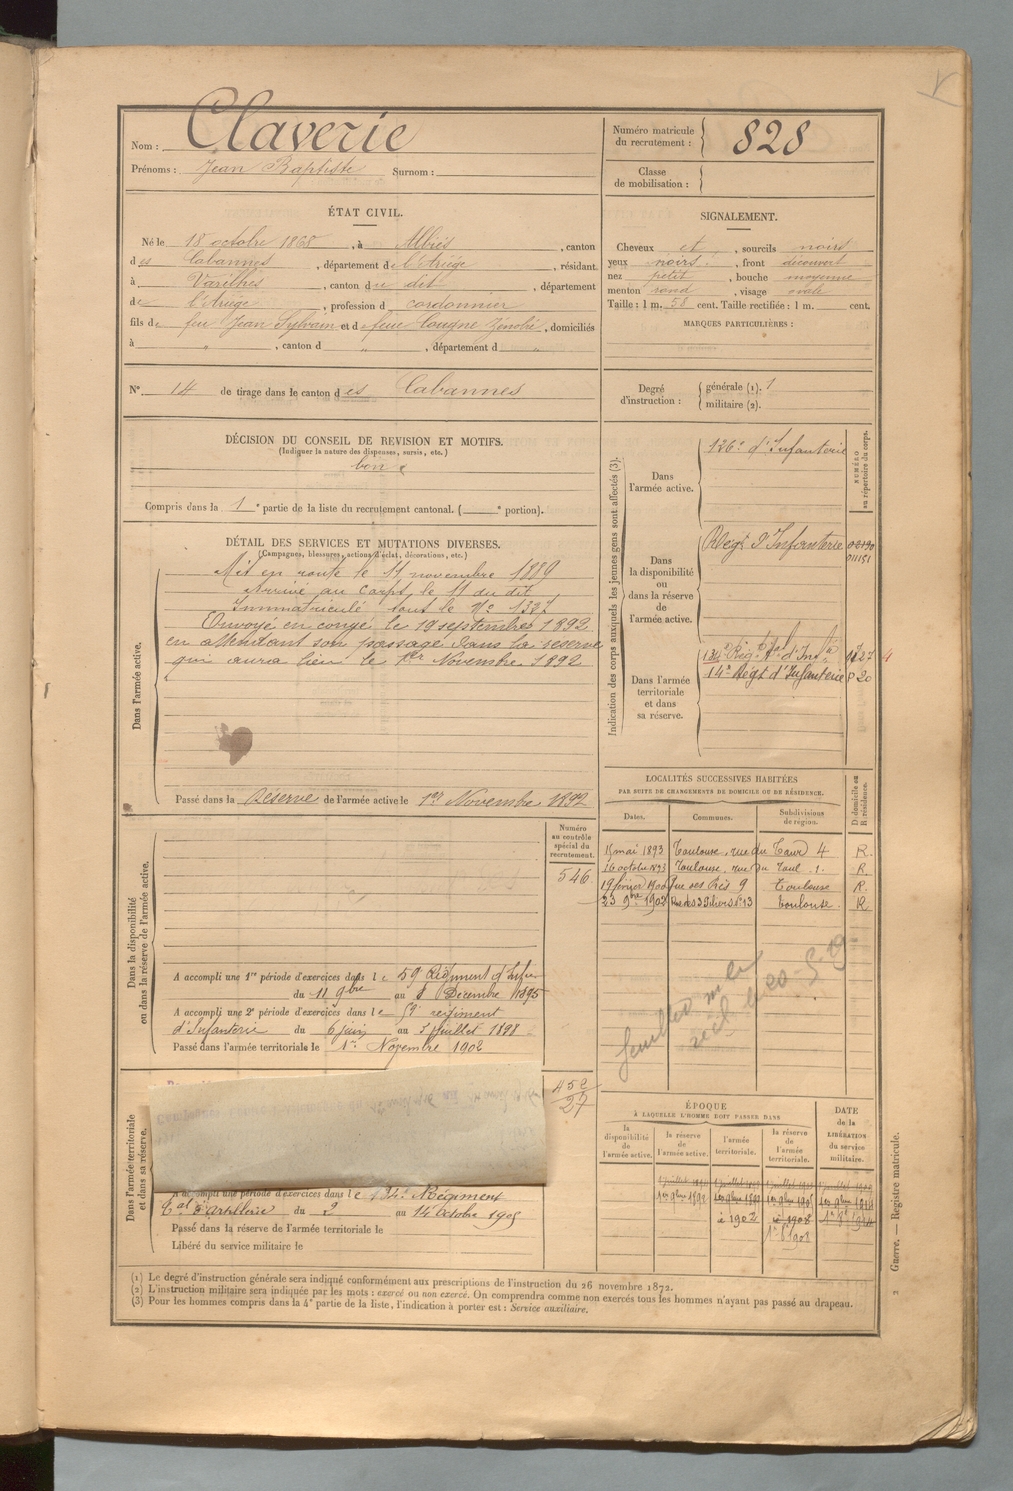 Nom : Claverie
Prénoms : Jean Baptiste Surnom :
Numéro matricule du recrutement : 828
Classe de mobilisation :
ÉTAT CIVIL.
Né le 18 octobre 1868, à Albiès, canton
des Cabannes, département de l'Ariège, résidant
à Varilhes, canton du dit, département
de l'Ariège, profession d cordonnier
fils de feu Jean Sylvain et de feue Cougne Zénobie, domiciliés
à ", canton d ", département d "
N° 14 de tirage dans le canton des Cabannes
SIGNALEMENT.
Cheveux et, sourcils noirs
yeux noirs, front découvert
nez petit, bouche moyenne
menton rond, visage ovale
Taille : 1 m. 58 cent. Taille rectifiée : 1 m. cent.
MARQUES PARTICULIÈRES :
Degré d'instruction :
générale (1). 1
militaire (2).
DÉCISION DU CONSEIL DE REVISION ET MOTIFS.
(Indiquer la nature des dispenses, sursis, etc.)
bon
Compris dans la 1e partie de la liste du recrutement cantonal. ( e portion).
DÉTAIL DES SERVICES ET MUTATIONS DIVERSES.
(Campagnes, blessures, actions d'éclat, décorations, etc.)
Dans l'armée active.
Mis en route le 11 novembre 1889
Arrivé au corps le 11 du dit
Immatriculé sous le No
Envoyé en congé le 19 septembre 1892
en attendant son passage dans la réserve
qui aura lieu le 1er Novembre 1892
Passé dans la Réserve de l'armée active le 1er Novembre 1892
Indication des corps auxquels les jeunes gens sont affectés (3).
NUMÉRO au répertoire du corps.
Dans l'armée active.
126e d'Infanterie
Dans la disponibilité ou dans la réserve de l'armée active.
Régt d'Infanterie
Dans l'armée territoriale et dans sa réserve.
134e Régt d'Inf
14e Régt d'Infanterie
LOCALITÉS SUCCESSIVES HABITÉES
PAR SUITE DE CHANGEMENTS DE DOMICILE OU DE RÉSIDENCE.
Dates. Communes. Subdivisions de région. D domicile ou R résidence.
mai 1893 Toulouse, rue du Taur 4 R.
16 octobre Toulouse, rue du 1. R.
19 février 1900 9 Toulouse R.
23 9bre 1902 13 Toulouse R
Dans la disponibilité ou dans la réserve de l'armée active.
Numéro au contrôle spécial du recrutement.
546
A accompli une 1re période d'exercices dans le 59 Régiment d'Infie
du 11 9bre au 8 Décembre 1895
A accompli une 2e période d'exercices dans le 59 régiment
d'Infanterie du 6 juin au 3 juillet 1898
Passé dans l'armée territoriale le 1er Novembre 1902
Dans l'armée territoriale et dans sa réserve.
452
27
A accompli une période d'exercices dans le 134e Régiment
Tal d'Artillerie du 2 au 14 octobre 1905
Passé dans la réserve de l'armée territoriale le
Libéré du service militaire le
ÉPOQUE
À LAQUELLE L'HOMME DOIT PASSER DANS
la disponibilité de l'armée active.
la réserve de l'armée active.
l'armée territoriale.
la réserve de l'armée territoriale.
DATE de la LIBÉRATION du service militaire.
1er 9bre 1892
1902
1908
(1) Le degré d'instruction générale sera indiqué conformément aux prescriptions de l'instruction du 26 novembre 1872.
(2) L'instruction militaire sera indiquée par les mots : exercé ou non exercé. On comprendra comme non exercés tous les hommes n'ayant pas passé au drapeau.
(3) Pour les hommes compris dans la 4e partie de la liste, l'indication à porter est : Service auxiliaire.
2 Guerre. — Registre matricule.